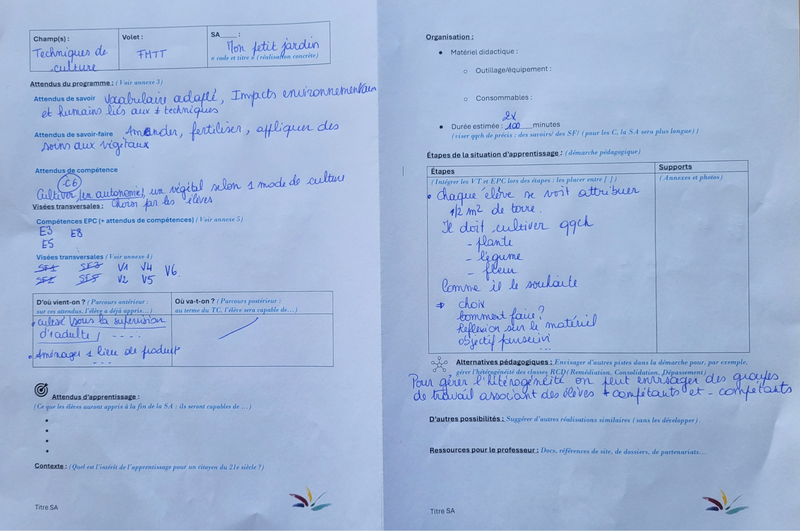 Champ(s) :
Techniques de
culture
Volet :
FMTT
SA____ :
Mon petit jardin
« code et titre » (réalisation concrète)
Attendus du programme : (Voir annexe 3)
Attendus de savoir Vocabulaire adapté, Impacts environnementaux
et humains liés aux ≠ techniques
Attendus de savoir-faire Amender, fertiliser, appliquer des
soins aux végétaux
Attendus de compétence
C6
Cultiver, en autonomie, un végétal selon 1 mode de culture
Visées transversales : choisi par les élèves
Compétences EPC (= attendus de compétences) (Voir annexe 5)
E3 E8
E5
Visées transversales (Voir annexe 4)
SF1 SF3 V1 V4 V6
SF2 SF5 V2 V5
D'où vient-on ? (Parcours antérieur :
sur ces attendus, l'élève a déjà appris…)
Où va-t-on ? (Parcours postérieur :
au terme du TC, l'élève sera capable de…)
• cultivé sous la supervision
d'1 adulte / ....
• Aménager 1 lieu de product°
....
Attendus d'apprentissage :
(Ce que les élèves auront appris à la fin de la SA : ils seront capables de …)
•
•
•
•
Contexte : (Quel est l'intérêt de l'apprentissage pour un citoyen du 21e siècle ?)
Titre SA
Organisation :
• Matériel didactique :
o Outillage/équipement :
o Consommables :
2x
• Durée estimée : 100 minutes
(viser qqch de précis : des savoirs/ des SF/ (pour les C, la SA sera plus longue))
Étapes de la situation d'apprentissage : (démarche pédagogique)
Étapes
(Intégrer les VT et EPC lors des étapes : les placer entre [ ])
Supports
(Annexes et photos)
• chaque élève se voit attribuer
1/2 m² de terre.
Il doit cultiver qqch
- plante
- légume
- fleur
Comme il le souhaite
⇒ choix
Comment faire?
Réflexion sur le matériel
objectif poursuivi
Alternatives pédagogiques : Envisager d'autres pistes dans la démarche pour, par exemple,
gérer l'hétérogénéité des classes RCD( Remédiation, Consolidation, Dépassement)
Pour gérer l'hétérogénéité on peut envisager des groupes
de travail associant des élèves + compétants et - compétants
D'autres possibilités : Suggérer d'autres réalisations similaires (sans les développer)
Ressources pour le professeur : Docs, références de site, de dossiers, de partenariats…
Titre SA